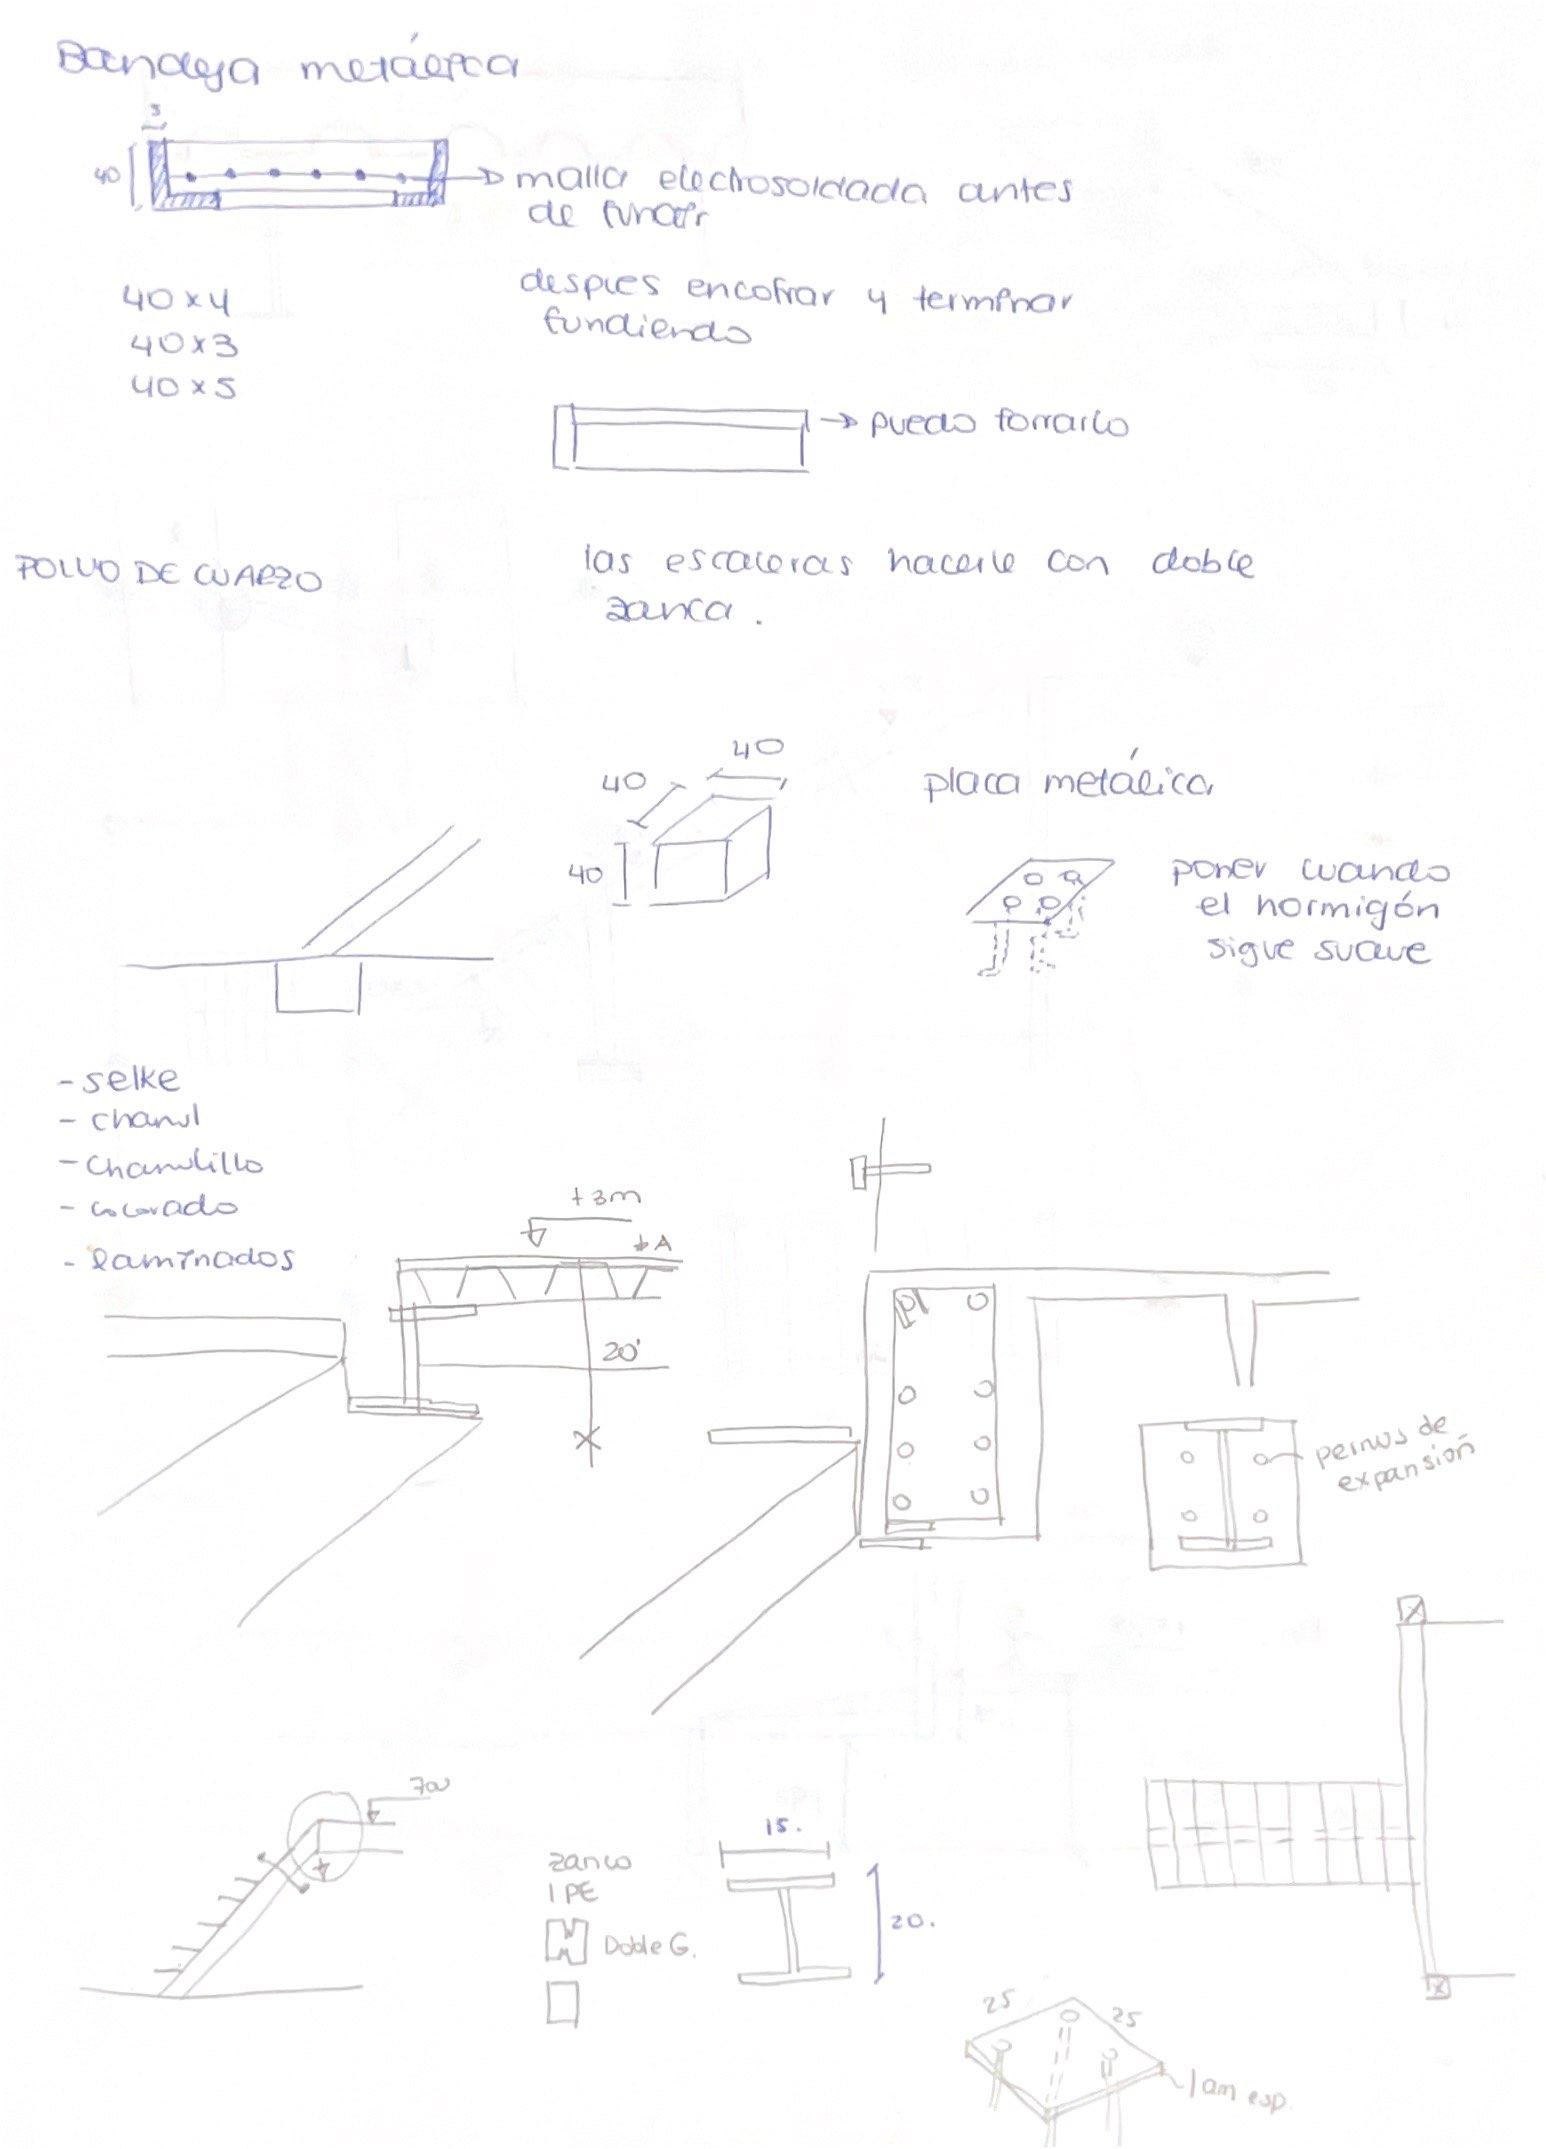 Bandeja metálica
3
40
malla electrosoldada antes
de fundir
40x4
40x3
40x5
despues encofrar y terminar
fundiendo
puedo forrarlo
POLVO DE CUARZO
las escaleras hacerle con doble
zanca.
40
40
40
placa metálica
poner cuando
el hormigón
sigue suave
- selke
- chanul
- chanulillo
- colorado
- laminados
+3m
A
20'
pernos de
expansión
zanco
IPE
Doble G.
15.
20.
25
25
1 cm esp.